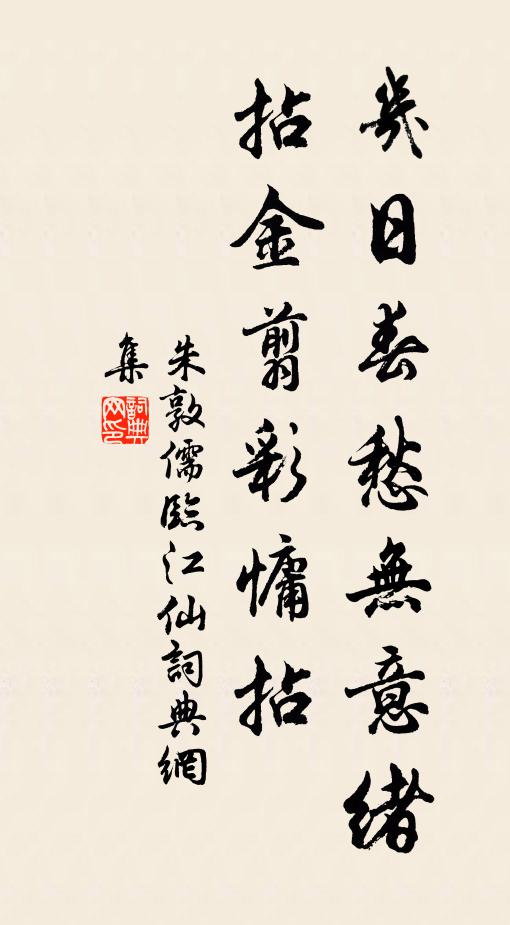 幾日春愁無意緒
拈金翦彩慵拈
朱敦儒臨江仙詞典網
集
詞典網印